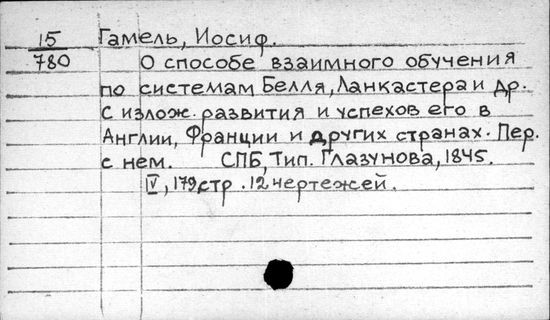 15 Гамель, Иосиф.
780 О способе взаимного обучения
по системам Белля, Ланкастера и др.
с излож. развития и успехов его в
Англии, Франции и других странах. Пер.
с нем. СПБ, Тип. Глазунова, 1845.
IV, 179 стр. 12 чертежей.